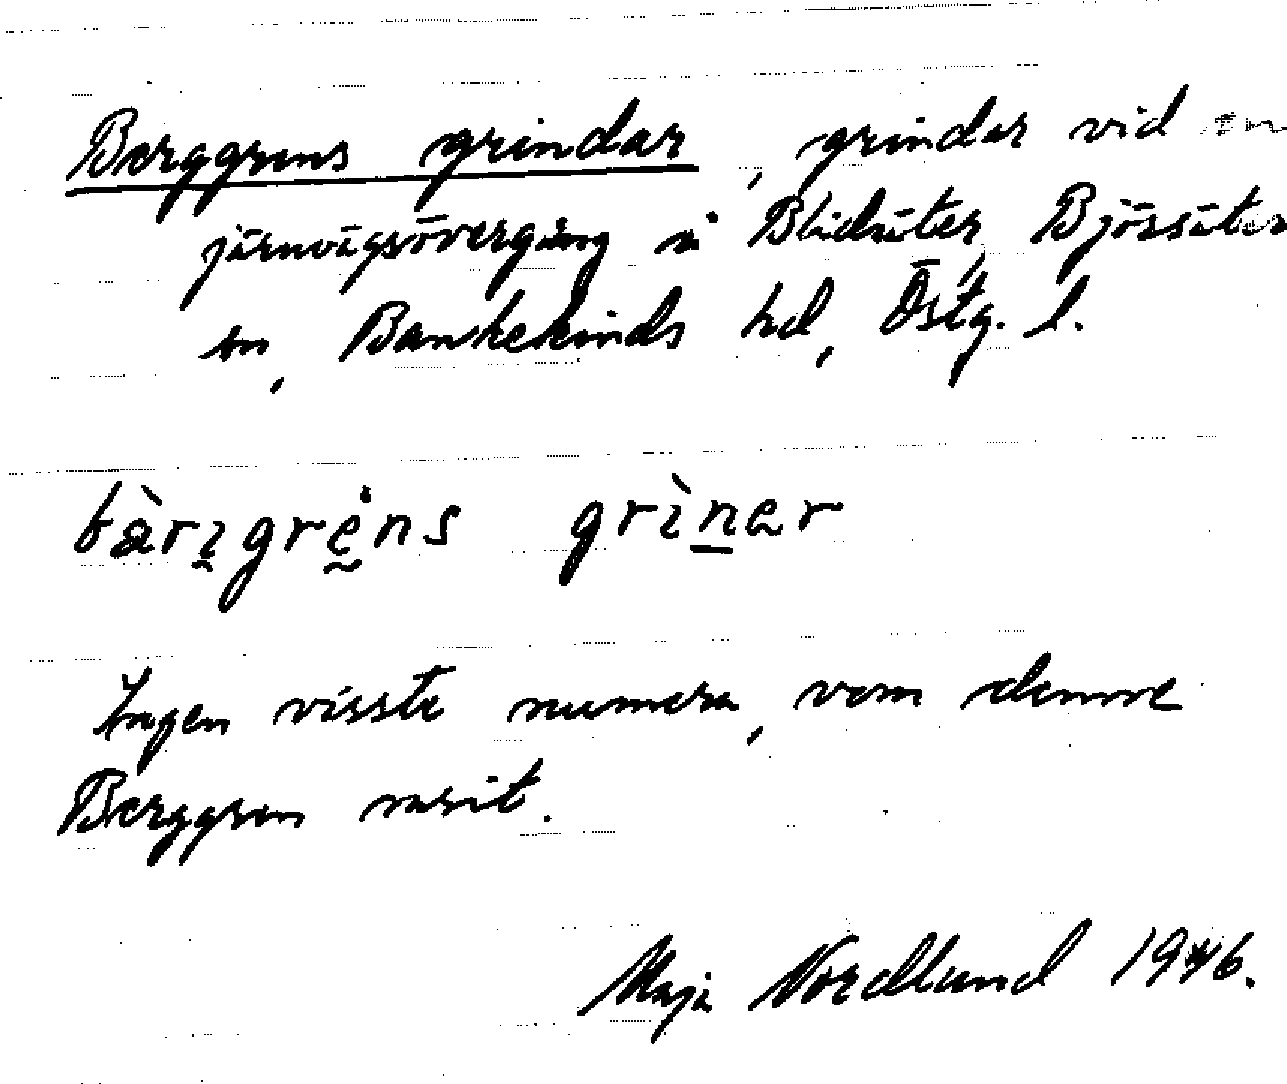 Berggrens grindar, grindar vid en
järnvägsövergång i Blidsäter, Björsäter
sn, Bankekinds hd, Östg. l.
bàrı̰grḛ̇ns grìn̲er
Ingen visste numera, vem denne
Berggren varit.
Maja Nordlund 1946.